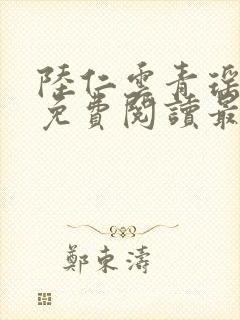 陸仁雲青瑤
免費閱讀最
鄭東濤